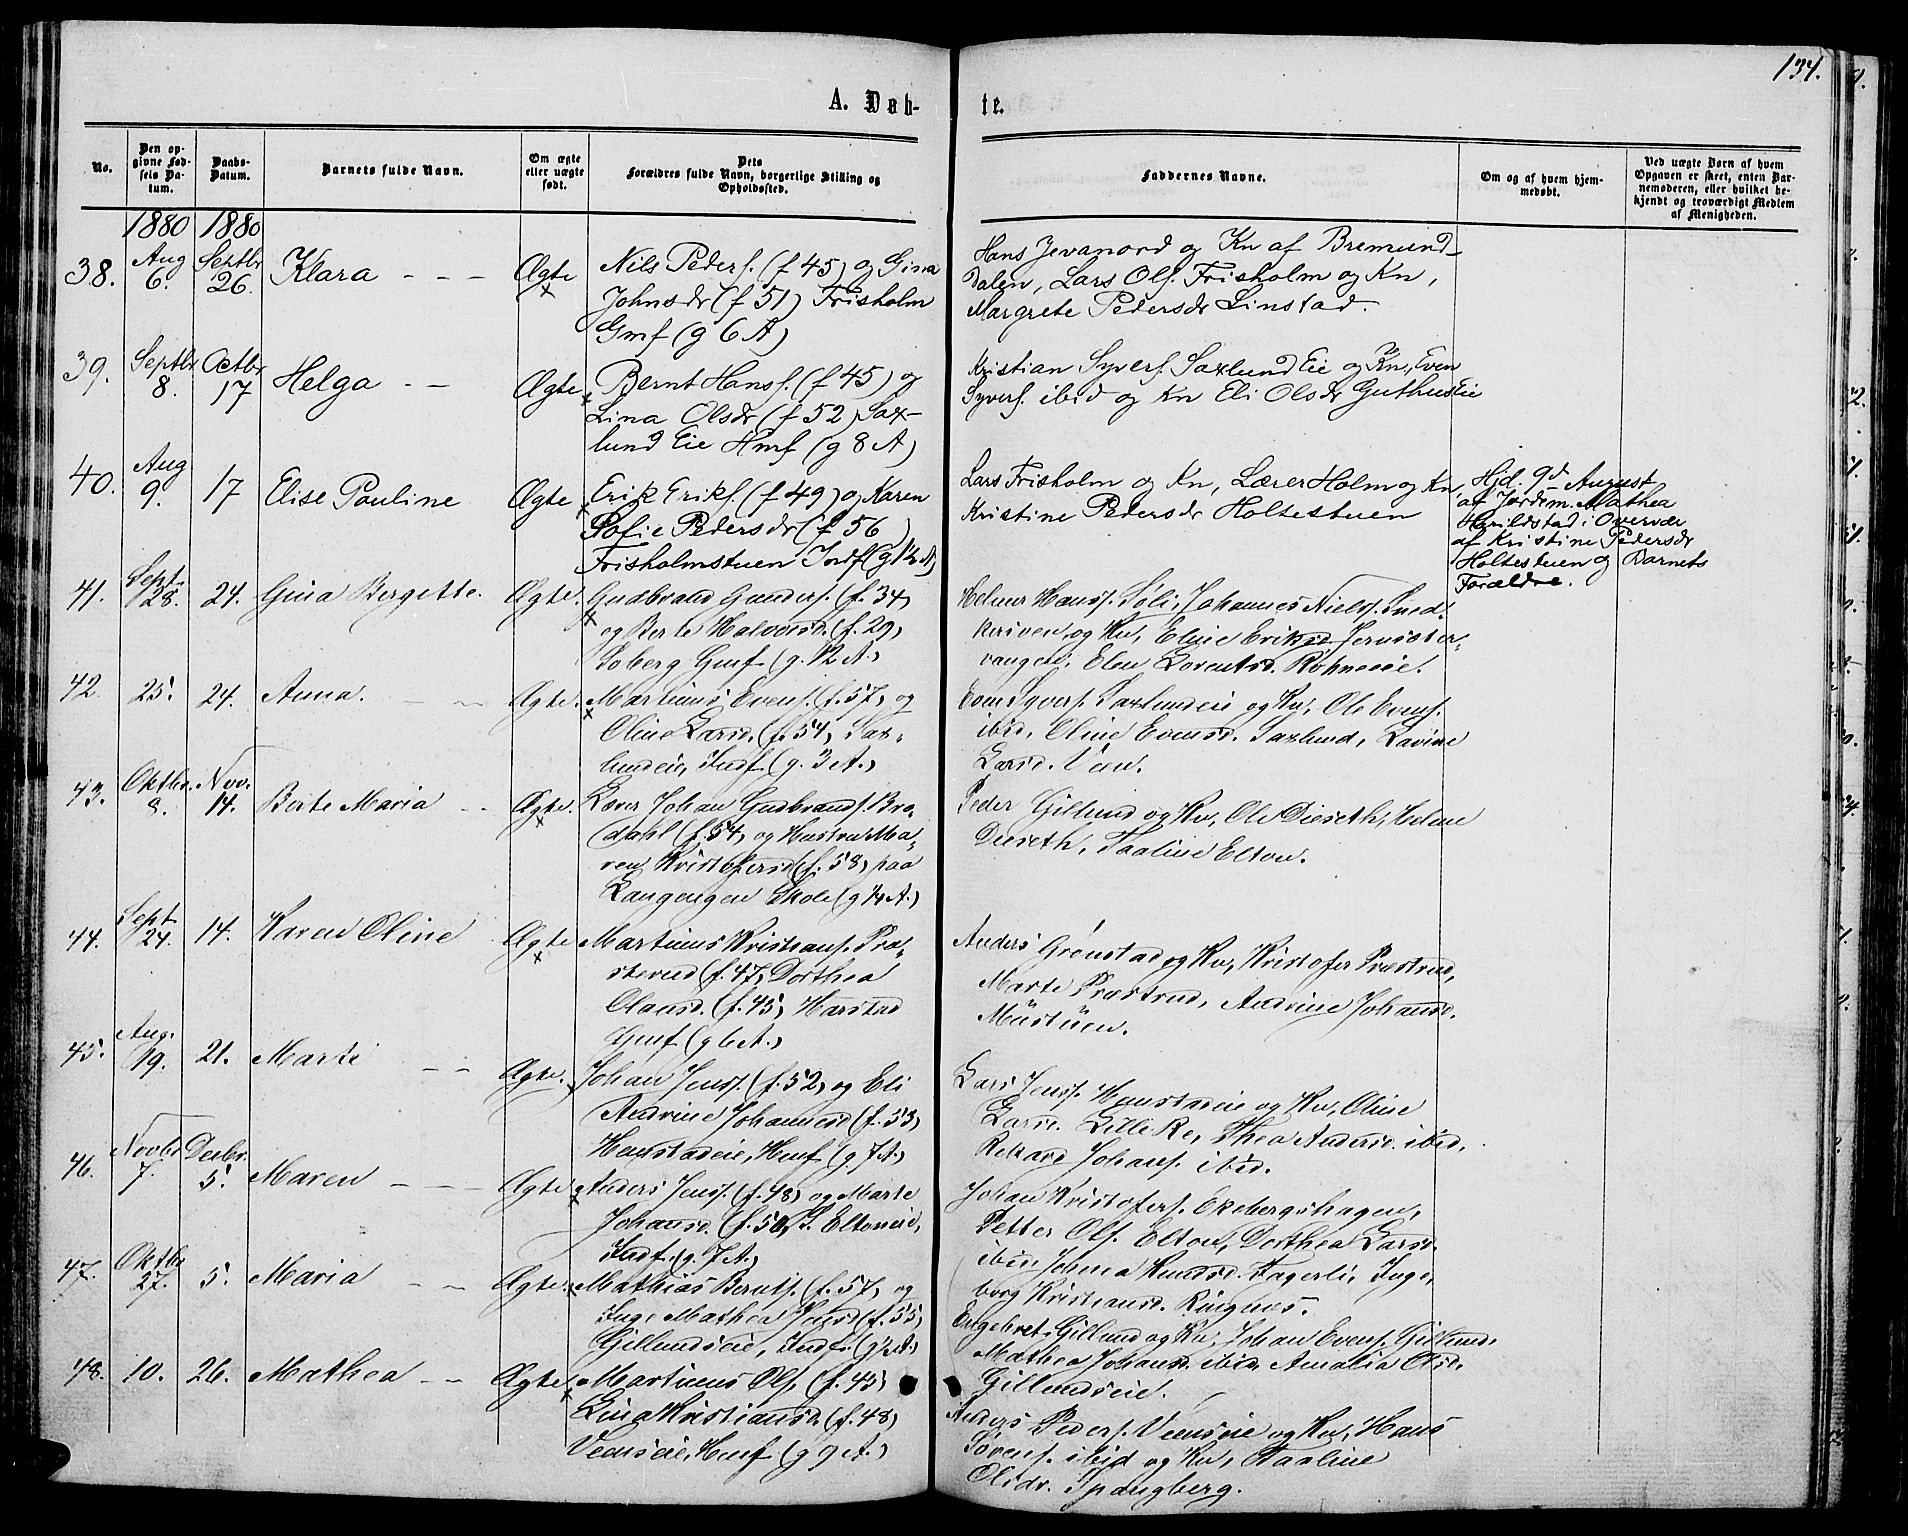 134.
A. Døb-
te.
No.
Den op-
givne Fød-
sels Da-
tum.
Daabs-
Datum.
Barnets fulde Navn.
Om ægte
eller uægte
født.
Dets
Forældres fulde Navn, borgerlige Stilling og
Opholdssted.
Faddernes Navne.
Om og af hvem hjem-
medøbt.
Ved uægte Børn af hvem
Opgaven er skeet, enten Bar-
nemoderen, eller hvilket be-
kjendt og troværdigt Medlem
af Menigheden.
1880 1880
38.
Aug
6.
Septbr
26.
Klara
Ægte
Nils Peders. (f 45) og Gina
Johnsdr (f 51) Frisholm
Gmf (g 6 A)
Hans Jevanord og Kn af Bremund-
dalen, Lars Ols. Frisholm og Kn,
Margrete Pedersdr Linstad.
39.
Septbr
8.
Octbr
17
Helga
Ægte
Bernt Hans. (f 45) og
Lina Olsdr (f 52) Sax-
lund Eie Hmf (g 8 A)
Kristian Syvers. Saxlund Eie og Kn, Even
Syvers. ibid og Kn Eli Olsdr Guthus Eie
40.
Aug
9.
17
Elise Pauline
Ægte
Erik Eriks. (f 49) og Karen
Sofie Pedersdr (f 56
Frisholmstuen Indf (g 1½ A)
Lars Frisholm og Kn, Lærer Holm og Kn,
Kristine Pedersdr Holtestuen
Hjd. 9d August
af Jordm. Mathea
Harildstad i Overvær
af Kristine Pedersdr
Holtestuen og Barnets
Forældre.
41.
Sept.
28.
24.
Gina Bergitte.
Ægte.
Gudbrand Gunders. (f. 34)
og Berte Halvorsd. (f. 29)
Soberg Gmf (g. 12 A.)
Helmer Hanss. Soli, Johannes Niels. Sned-
kersven, og Kn, Eline Eriksd. Jernsæter-
vangen, Elen Lorentsd. Røhneeie.
42.
25.
24.
Anna.
Ægte.
Martinus Evens. (f. 57) og
Oline Larsd. (f. 54) Sax-
lundeie, Indf. (g. 3 A.)
Even Syvers. Saxlundeie og Kn, Ole Evens.
ibid. Oline Evensd. Saxlund, Lavine
Larsd. Veen.
43.
Oktbr.
8.
Nov.
14.
Berte Maria
Ægte.
Lærer Johan Gudbrands. Bro-
dahl (f. 54) og Hustru Ma-
ren Kristofersd (f. 58) paa
Langengen Skole (g ¼ A.)
Peder Gillund og Kn, Ole Dieseth, Helene
Dieseth, Paaline Elton.
44.
Sept.
24.
14.
Karen Oline
Ægte
Martinus Kristians. Præ-
sterud (f. 47) Dorthea
Olausd. (f. 45) Harstad
Gmf (g 6 A.)
Anders Grønstad og Kn, Kristofer Præstrud,
Marte Præstrud, Andrine Johansd.
Müstüen.
45.
Aug.
19.
21.
Marte
Ægte.
Johan Jens. (f. 52) og Eli
Andrine Johannesd (f. 53)
Honstadeie, Hmf (g. 7 A.)
Lars Jens. Honstadeie og Kn, Oline
Larsd. Lille Re, Thea Andersd. ibid.
Rikard Johans. ibid.
46.
Novbr
7.
Decbr.
5.
Maren
Ægte
Anders Jens. (f. 48) og Marte
Johansd. (f. 50) S. Eltoneie,
Indf. (g. 7 A.)
Johan Kristofers. Ekebergshagen,
Petter Ols. Elton, Dorthea Larsd.
ibid, Johna Knudsd. Fagerli, Inge-
borg Kristiansd. Ringnes.
47.
Oktbr
27.
5.
Maria
Ægte.
Mathias Bernts. (f. 57) og
Inge Mathea Jensd (f. 55)
Gillundseie, Indf. (g ½ A.)
Engebret Gillund og Kn, Johan Evens. Gillund.
Mathea Johansd. ibid, Amalia Olsd.
Gillundseie.
48.
10.
26.
Mathea
Ægte.
Martinus Ols. (f. 45)
Lina Kristiansd. (f. 48)
Veenseie, Hmf (g 9 A.)
Anders Peders. Veenseie og Kn, Hans
Sørens. ibid og Kn, Paaline
Olsdr. Spangberg.